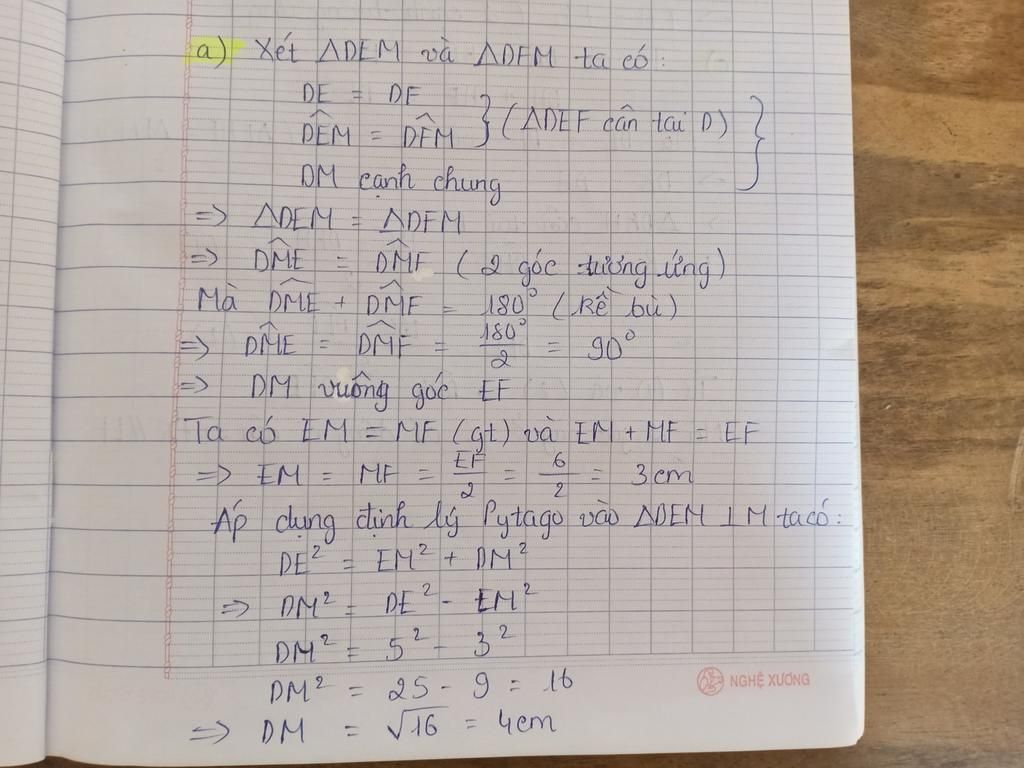 a) Xét ΔDEM và ΔDFM ta có:
DE = DF
DÊM = DF̂M } (ΔDEF cân tại D)
DM cạnh chung
=> ΔDEM = ΔDFM
=> DM̂E = DM̂F (2 góc tương ứng)
Mà DM̂E + DM̂F = 180° (kề bù)
=> DM̂E = DM̂F = 180°/2 = 90°
=> DM vuông góc EF
Ta có EM = MF (gt) và EM + MF = EF
=> EM = MF = EF/2 = 6/2 = 3cm
Áp dụng định lý Pytago vào ΔDEM ⊥ M ta có:
DE² = EM² + DM²
=> DM² = DE² - EM²
DM² = 5² - 3²
DM² = 25 - 9 = 16
NGHỆ XƯƠNG
=> DM = √16 = 4cm